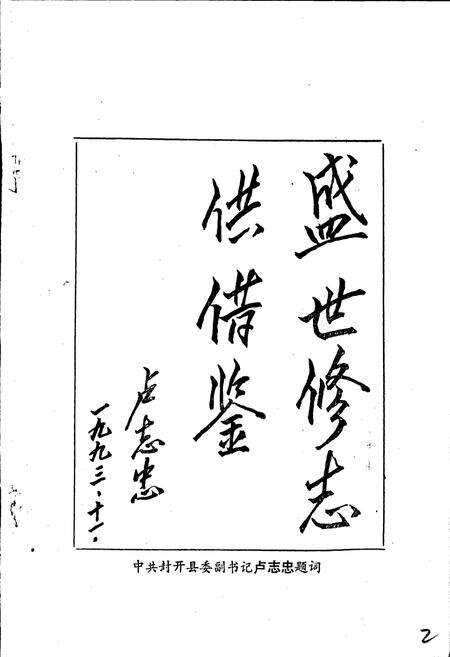 盛世修志
供借鉴
卢志忠
一九九三·十一·
中共封开县委副书记卢志忠题词
2